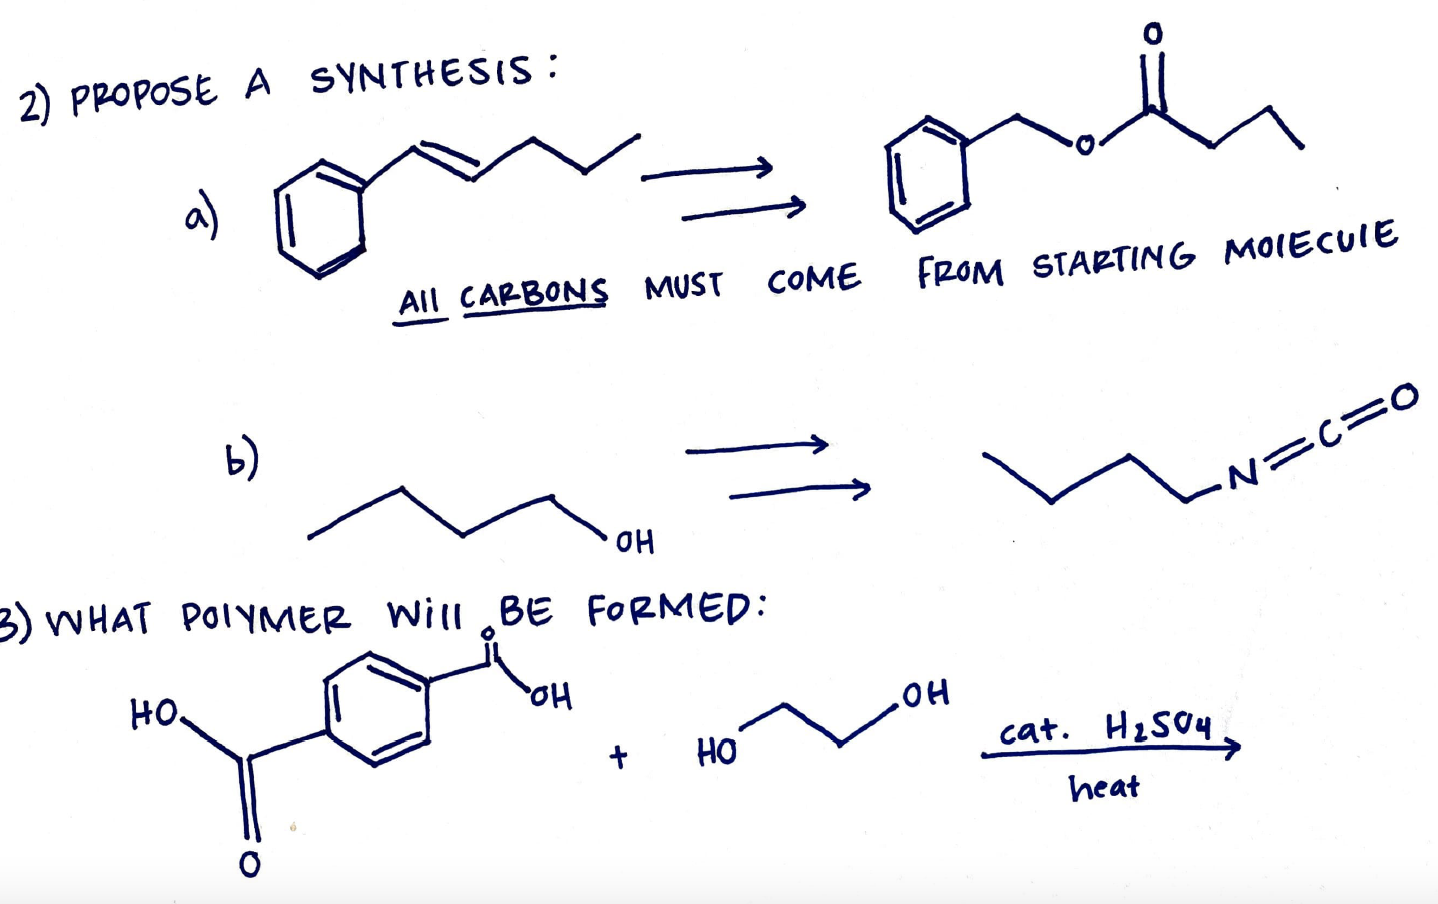 2) PROPOSE A SYNTHESIS:
O
a)
O
All CARBONS MUST COME FROM STARTING MOlECUlE
b)
OH
N=C=O
3) WHAT POlYMER Will BE FORMED:
O
HO
OH
OH
HO
+
cat. H₂SO₄
heat
O